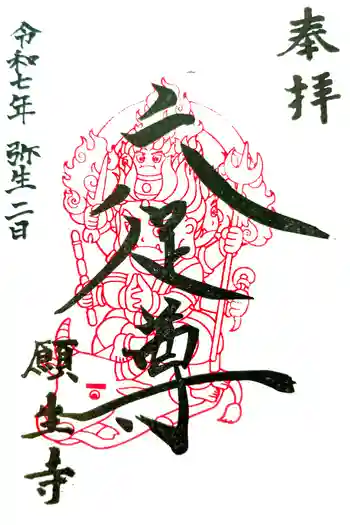 奉拝
六足尊
令和七年 弥生二日
願生寺